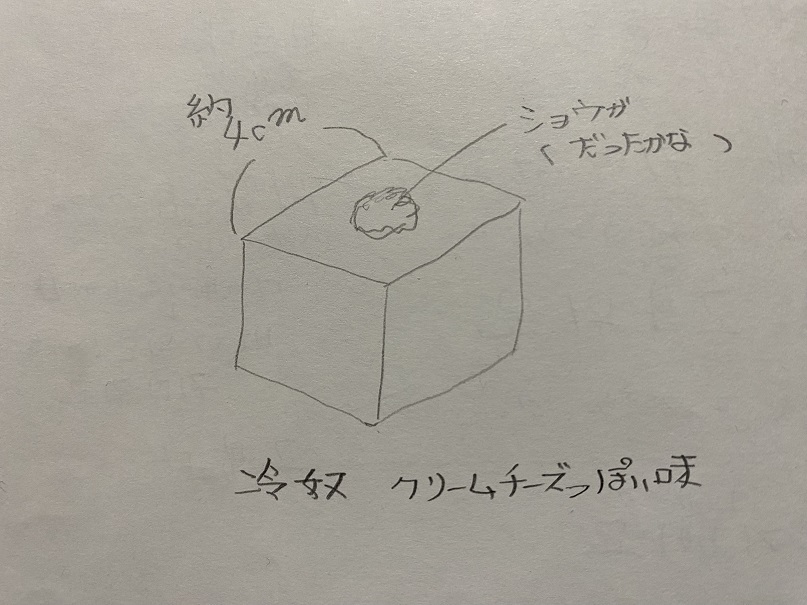 約4cm
ショウガ
(だったかな)
冷奴 クリームチーズっぽい味